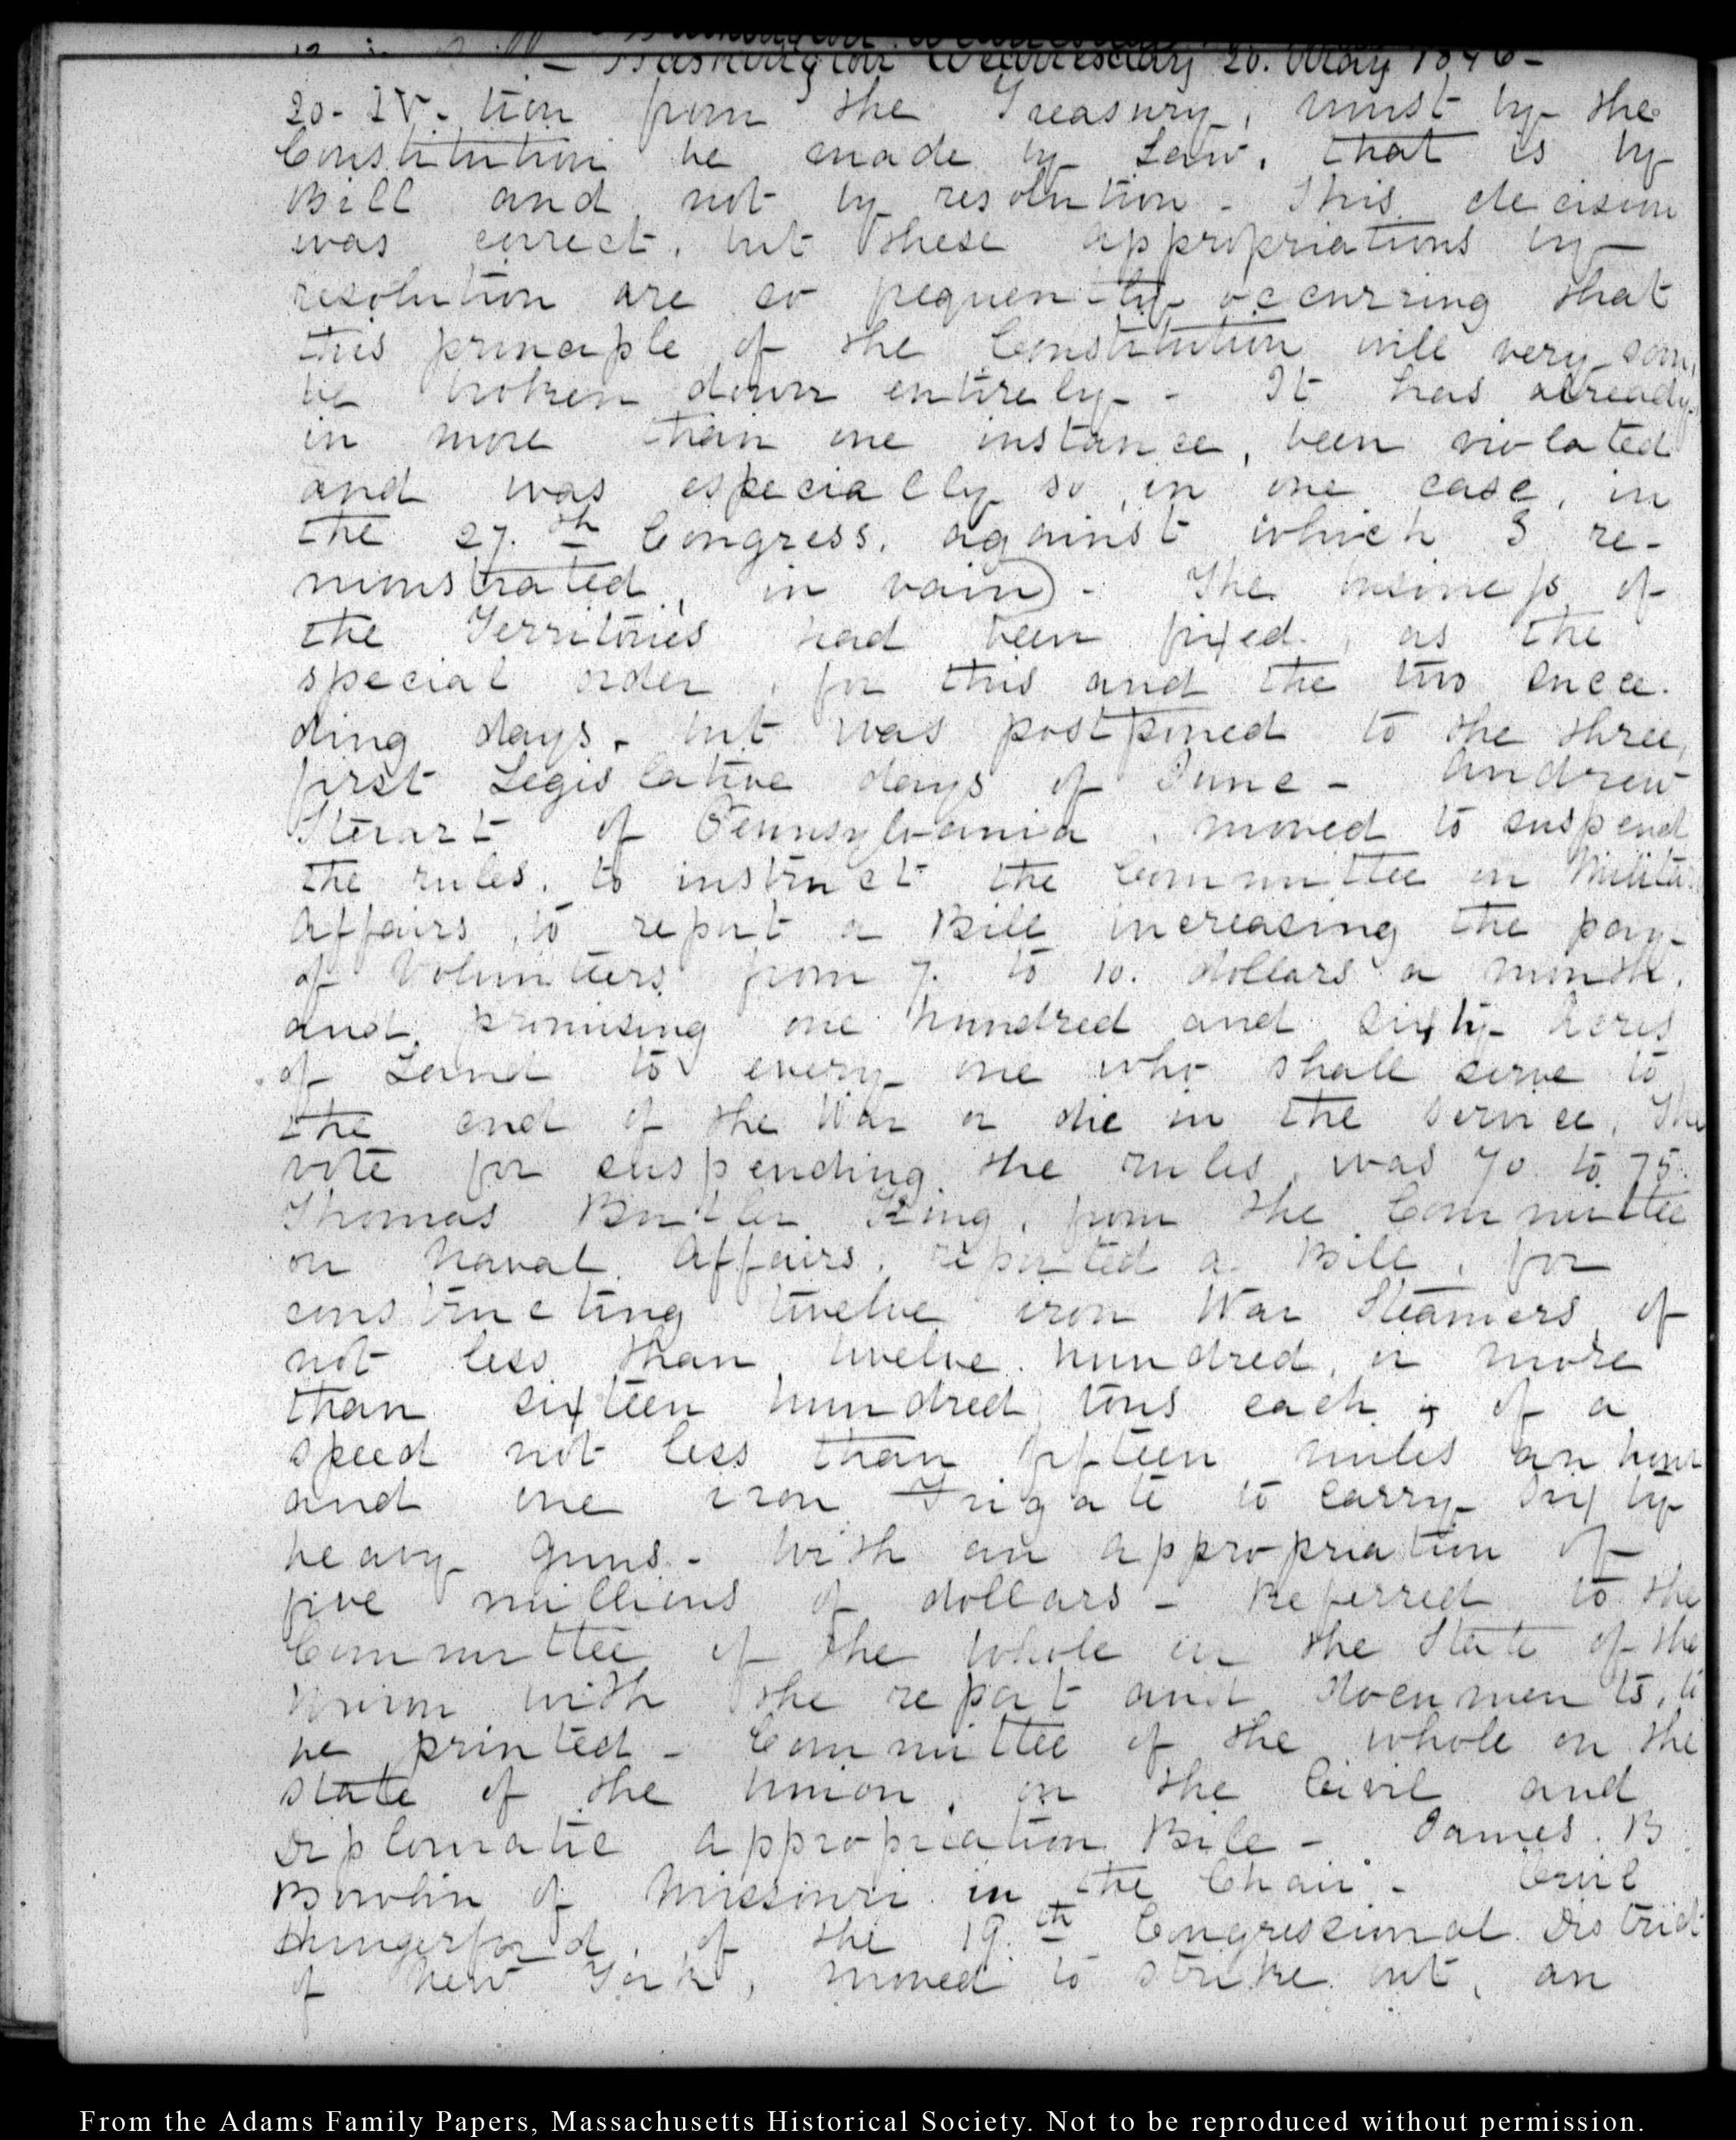 Washington Wednesday 20. May 1846-
20-IV. tion from the Treasury, must by the
Constitution be made by Law, that is by
Bill and not by resolution - This decision
was correct, but these appropriations by
resolution are so frequently occurring that
this principle of the Constitution will very soon,
be broken down entirely - It has already
in more than one instance, been violated
and was especially so, in one case, in
the 27.th Congress, against which I re-
monstrated, in vain) - The business of
the Territories had been fixed, as the
special order, for this and the two succee-
ding days - but was postponed to the three,
first Legislative days of June - Andrew
Stewart of Pennsylvania, moved to suspend
the rules, to instruct the Committee on Milita
Affairs, to report a Bill increasing the pay
of Volunteers from 7. to 10. dollars a month,
and promising one hundred and sixty Acres
of Land to every one who shall serve to
the end of the War or die in the service, The
vote for suspending the rules, was 70 to 75.
Thomas Butler King, from the Committee
on Naval Affairs, reported a Bill, for
constructing twelve iron War Steamers of
not less than twelve hundred, or more
than sixteen hundred tons each, of a
speed not less than fifteen miles an hour
and one iron Frigate to carry sixty
heavy guns - with an appropriation of
five millions of dollars - Referred to the
Committee of the whole on the State of the
Union with the report and documents, to
be printed - Committee of the whole on the
state of the Union, on the Civil and
Diplomatic Appropriation Bill - James. B
Bowlin of Missouri in the Chair - Orvil
Hungerford, of the 19.th Congressional District
of New York, moved to strike out, an
From the Adams Family Papers, Massachusetts Historical Society. Not to be reproduced without permission.